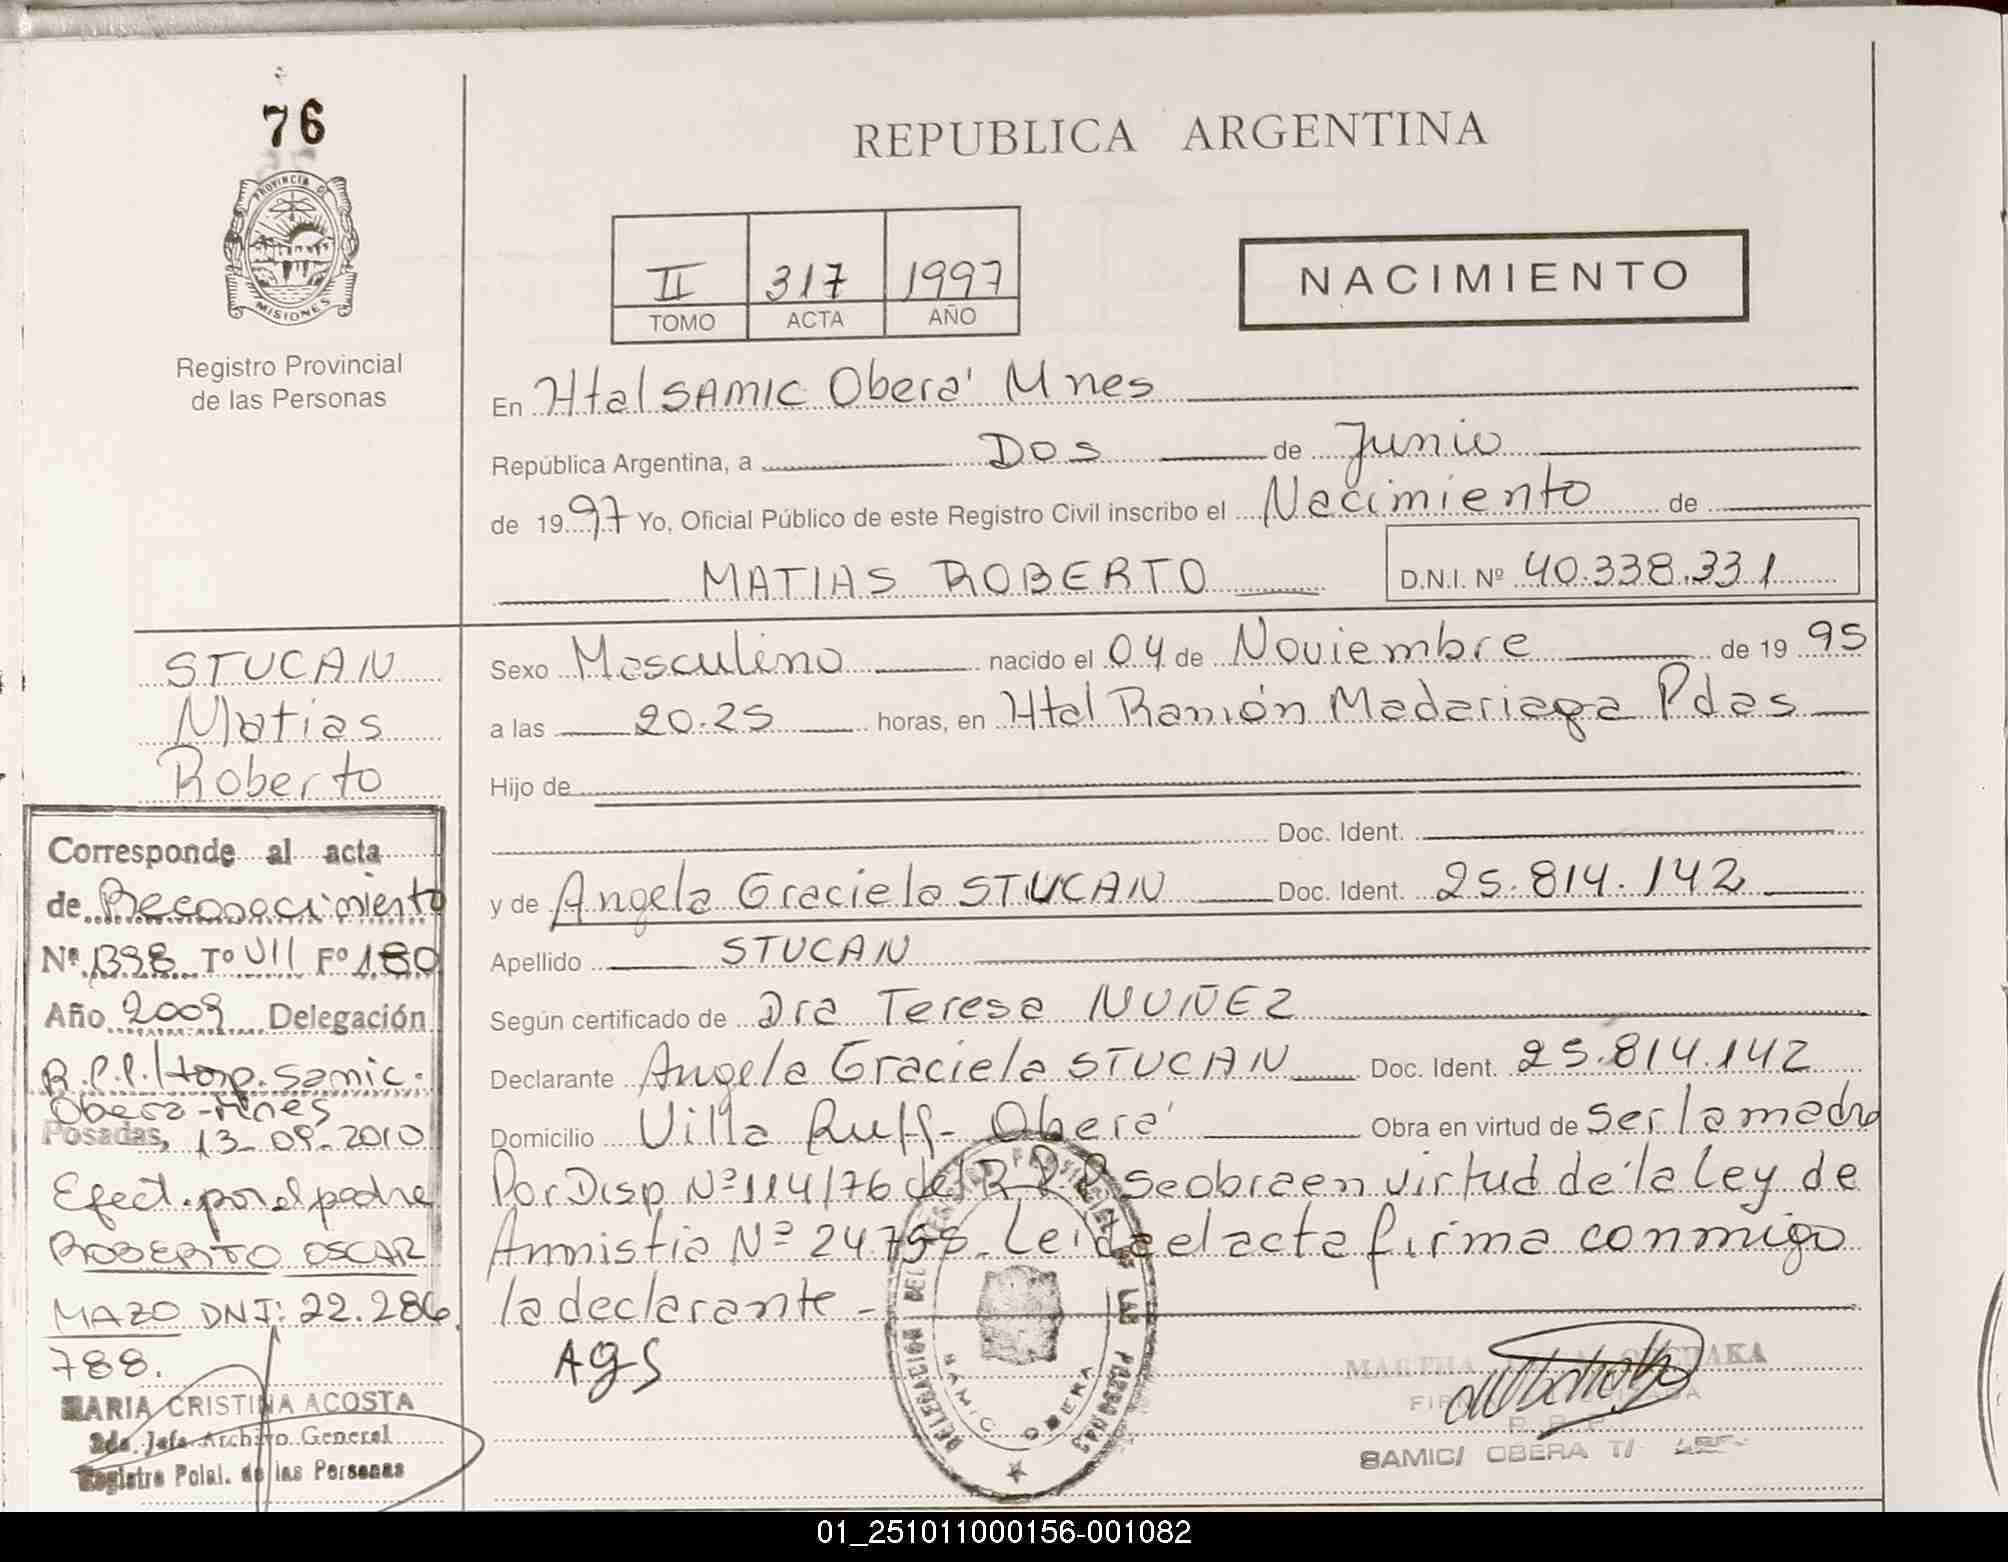 76
PROVINCIA DE
MISIONES
Registro Provincial
de las Personas
REPUBLICA ARGENTINA
II 317 1997
TOMO ACTA AÑO
NACIMIENTO
En Htal SAMIC Oberá Mnes
República Argentina, a Dos de Junio
de 1997 Yo, Oficial Público de este Registro Civil inscribo el Nacimiento de
MATIAS ROBERTO D.N.I. Nº 40.338.331
Sexo Masculino nacido el 04 de Noviembre de 1995
a las 20.25 horas, en Htal Ramón Madariaga Pdas
Hijo de
Doc. Ident.
y de Angela Graciela STUCAN Doc. Ident. 25.814.142
Apellido STUCAN
Según certificado de Dra Teresa NUÑEZ
Declarante Angela Graciela STUCAN Doc. Ident. 25.814.142
Domicilio Villa Ruff- Oberá Obra en virtud de ser la madre
Por Disp Nº 114/76 del R.P.P. se obra en virtud de la Ley de
Amnistia Nº 24.755. Leida el acta firma conmigo
la declarante -
AGS
STUCAN
Matias
Roberto
Corresponde al acta
de Reconocimiento
Nº 1398 Tº VII Fº 180
Año 2009 Delegación
R.P.P. Hosp. Samic.
Obera - Mnes
Posadas, 13-09-2010
Efect. por el padre
ROBERTO OSCAR
MAZO DNI: 22.286.
788.
MARIA CRISTINA ACOSTA
2da. Jefa Archivo General
Registro Polal. de las Personas
DELEGACION DEL REGISTRO PROVINCIAL DE LAS PERSONAS
SAMIC OBERA
MARTHA
R. P. P.
SAMIC/ OBERA
01_251011000156-001082